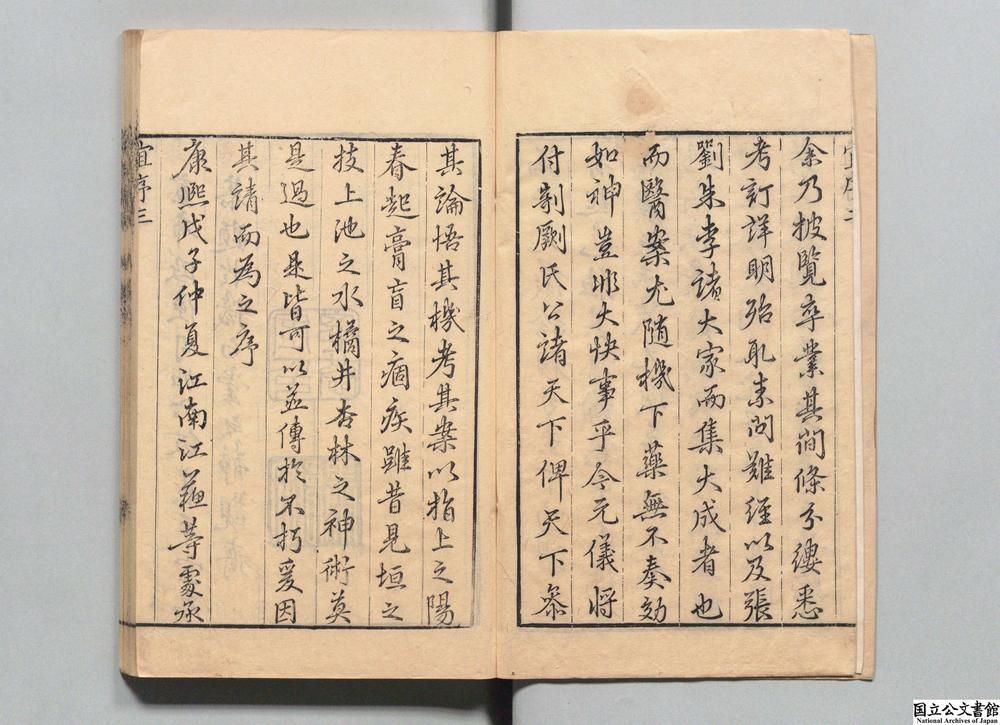 余乃披覽卒業其間條分縷悉
考訂詳明殆取素問難經以及張
劉朱李諸大家而集大成者也
而醫案尤隨機下藥無不奏効
如神豈非大快事乎今元儀将
付剞劂氏公諸天下俾天下叅
其論悟其機考其案以指上之陽
春起膏肓之痼疾雖昔見垣之
技上池之水橘井杏林之神術莫
是過也是皆可以並傳於不朽爰因
其請而為之序
康熙戊子仲夏江南江蘇等處承
宜序三
国立公文書館
National Archives of Japan